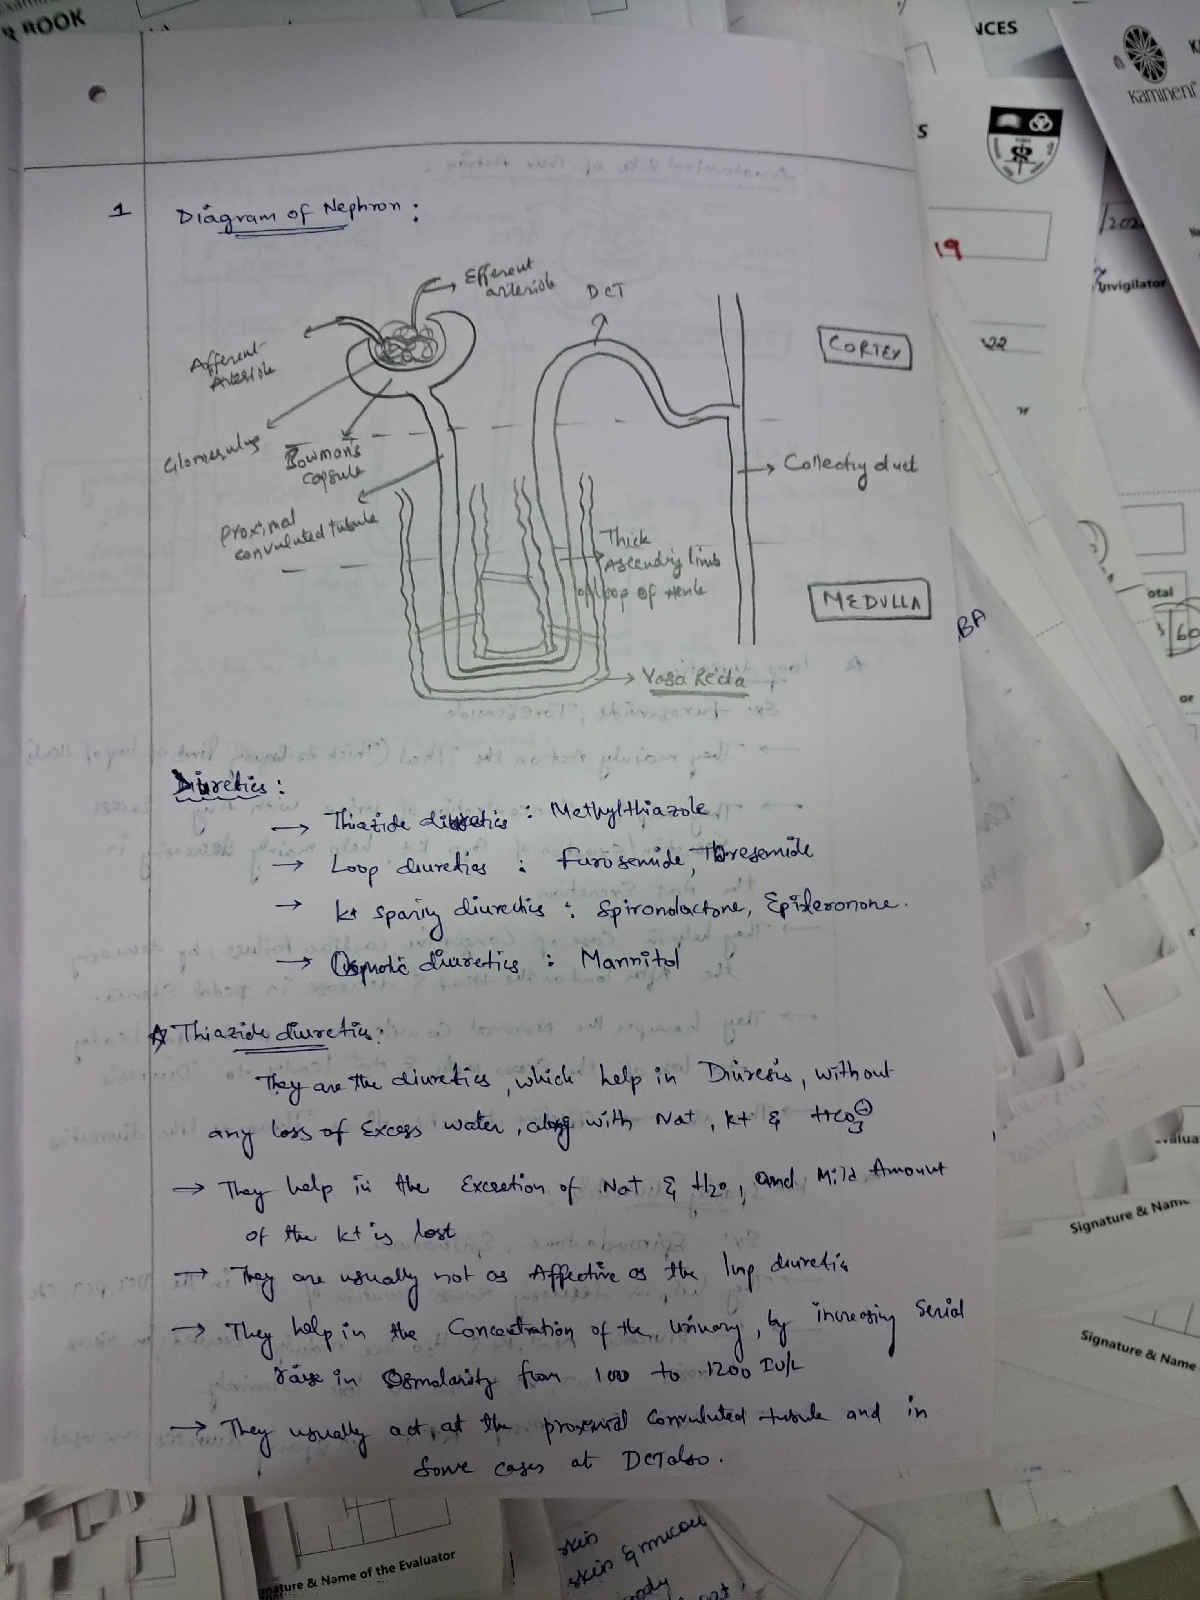 BOOK
NCES
Kamineni
S
19
/202
Invigilator
22
1 Diagram of Nephron :
Efferent
arteriole
DCT
CORTEX
Afferent
Arteriole
Glomerulus
Bowman's
capsule
Collectig duct
proximal
convuluted tubule
Thick
Ascendig limb
of loop of Henle
MEDULLA
BA
otal
60
or
Vasa Recta
Diuretics :
→ Thiazide diuretics : Methylthiazole
→ Loop diuretics : Furosemide, Toresemide
→ K+ sparig diuretics : Spironolactone, Epileronone.
→ Osmotic diuretics : Mannitol
☆ Thiazide diuretics:
They are the diuretics, which help in Diuresis, without
any loss of Excess water, along with Na+, K+ & HCO3⊖
→ They help in the Excretion of Na+ & H2O, and Mild Amount
of the K+ is lost
→ They are usually not as Affective as the loop diuretics
→ They help in the Concentration of the urinary, by increasing Serial
raise in Osmolarity from 100 to 1200 IU/L
→ They usually act, at the proximal Convuluted tubule and in
Some cases at DCT also.
Signature & Name
Signature & Name
nature & Name of the Evaluator
skin
skin & mucou
body